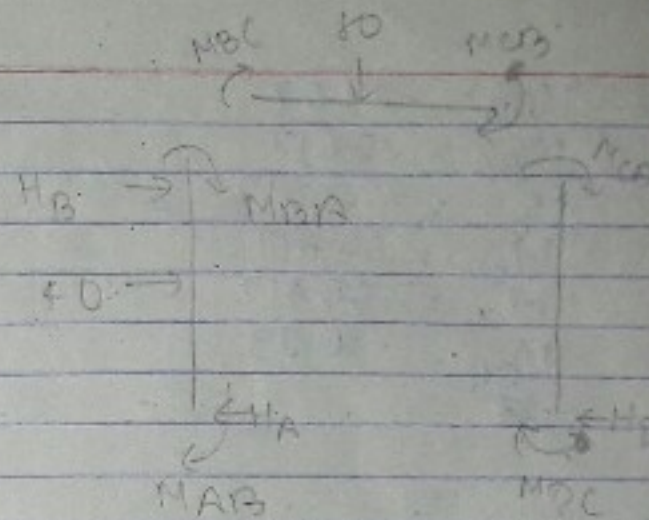 MBC 80 MCB
HB MBA
40
HA
MAB MDC